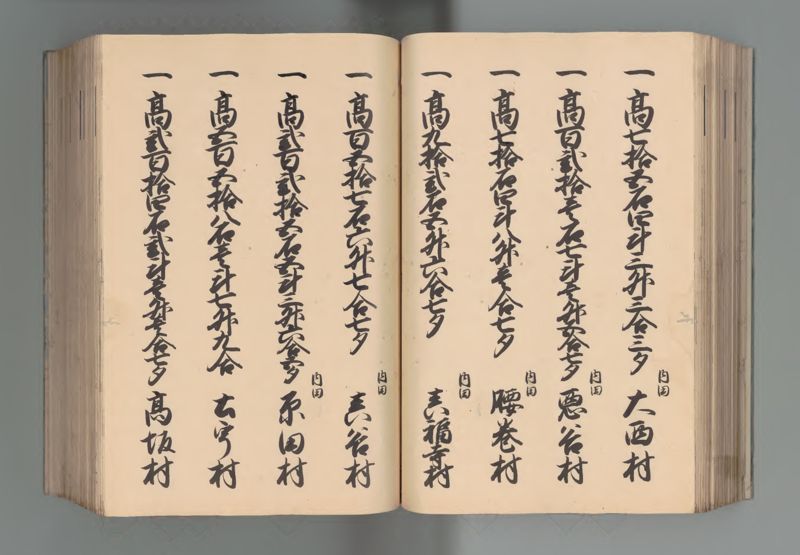 一高七拾五石四斗三升三合三夕 内田 大西村
一高百弐拾壱石七斗壱升五合七夕 内田 悪谷村
一高七拾石四斗八升壱合七夕 内田 腰巻村
一高九拾弐石五升六合七夕 内田 真福寺村
一高百五拾七石六升七合七夕 内田 真谷村
一高弐百弐拾五石五斗三升六合五夕 内田 原田村
一高五百五拾八石壱斗七升九合 村
一高弐百拾四石弐斗壱升壱合七夕 高坂村